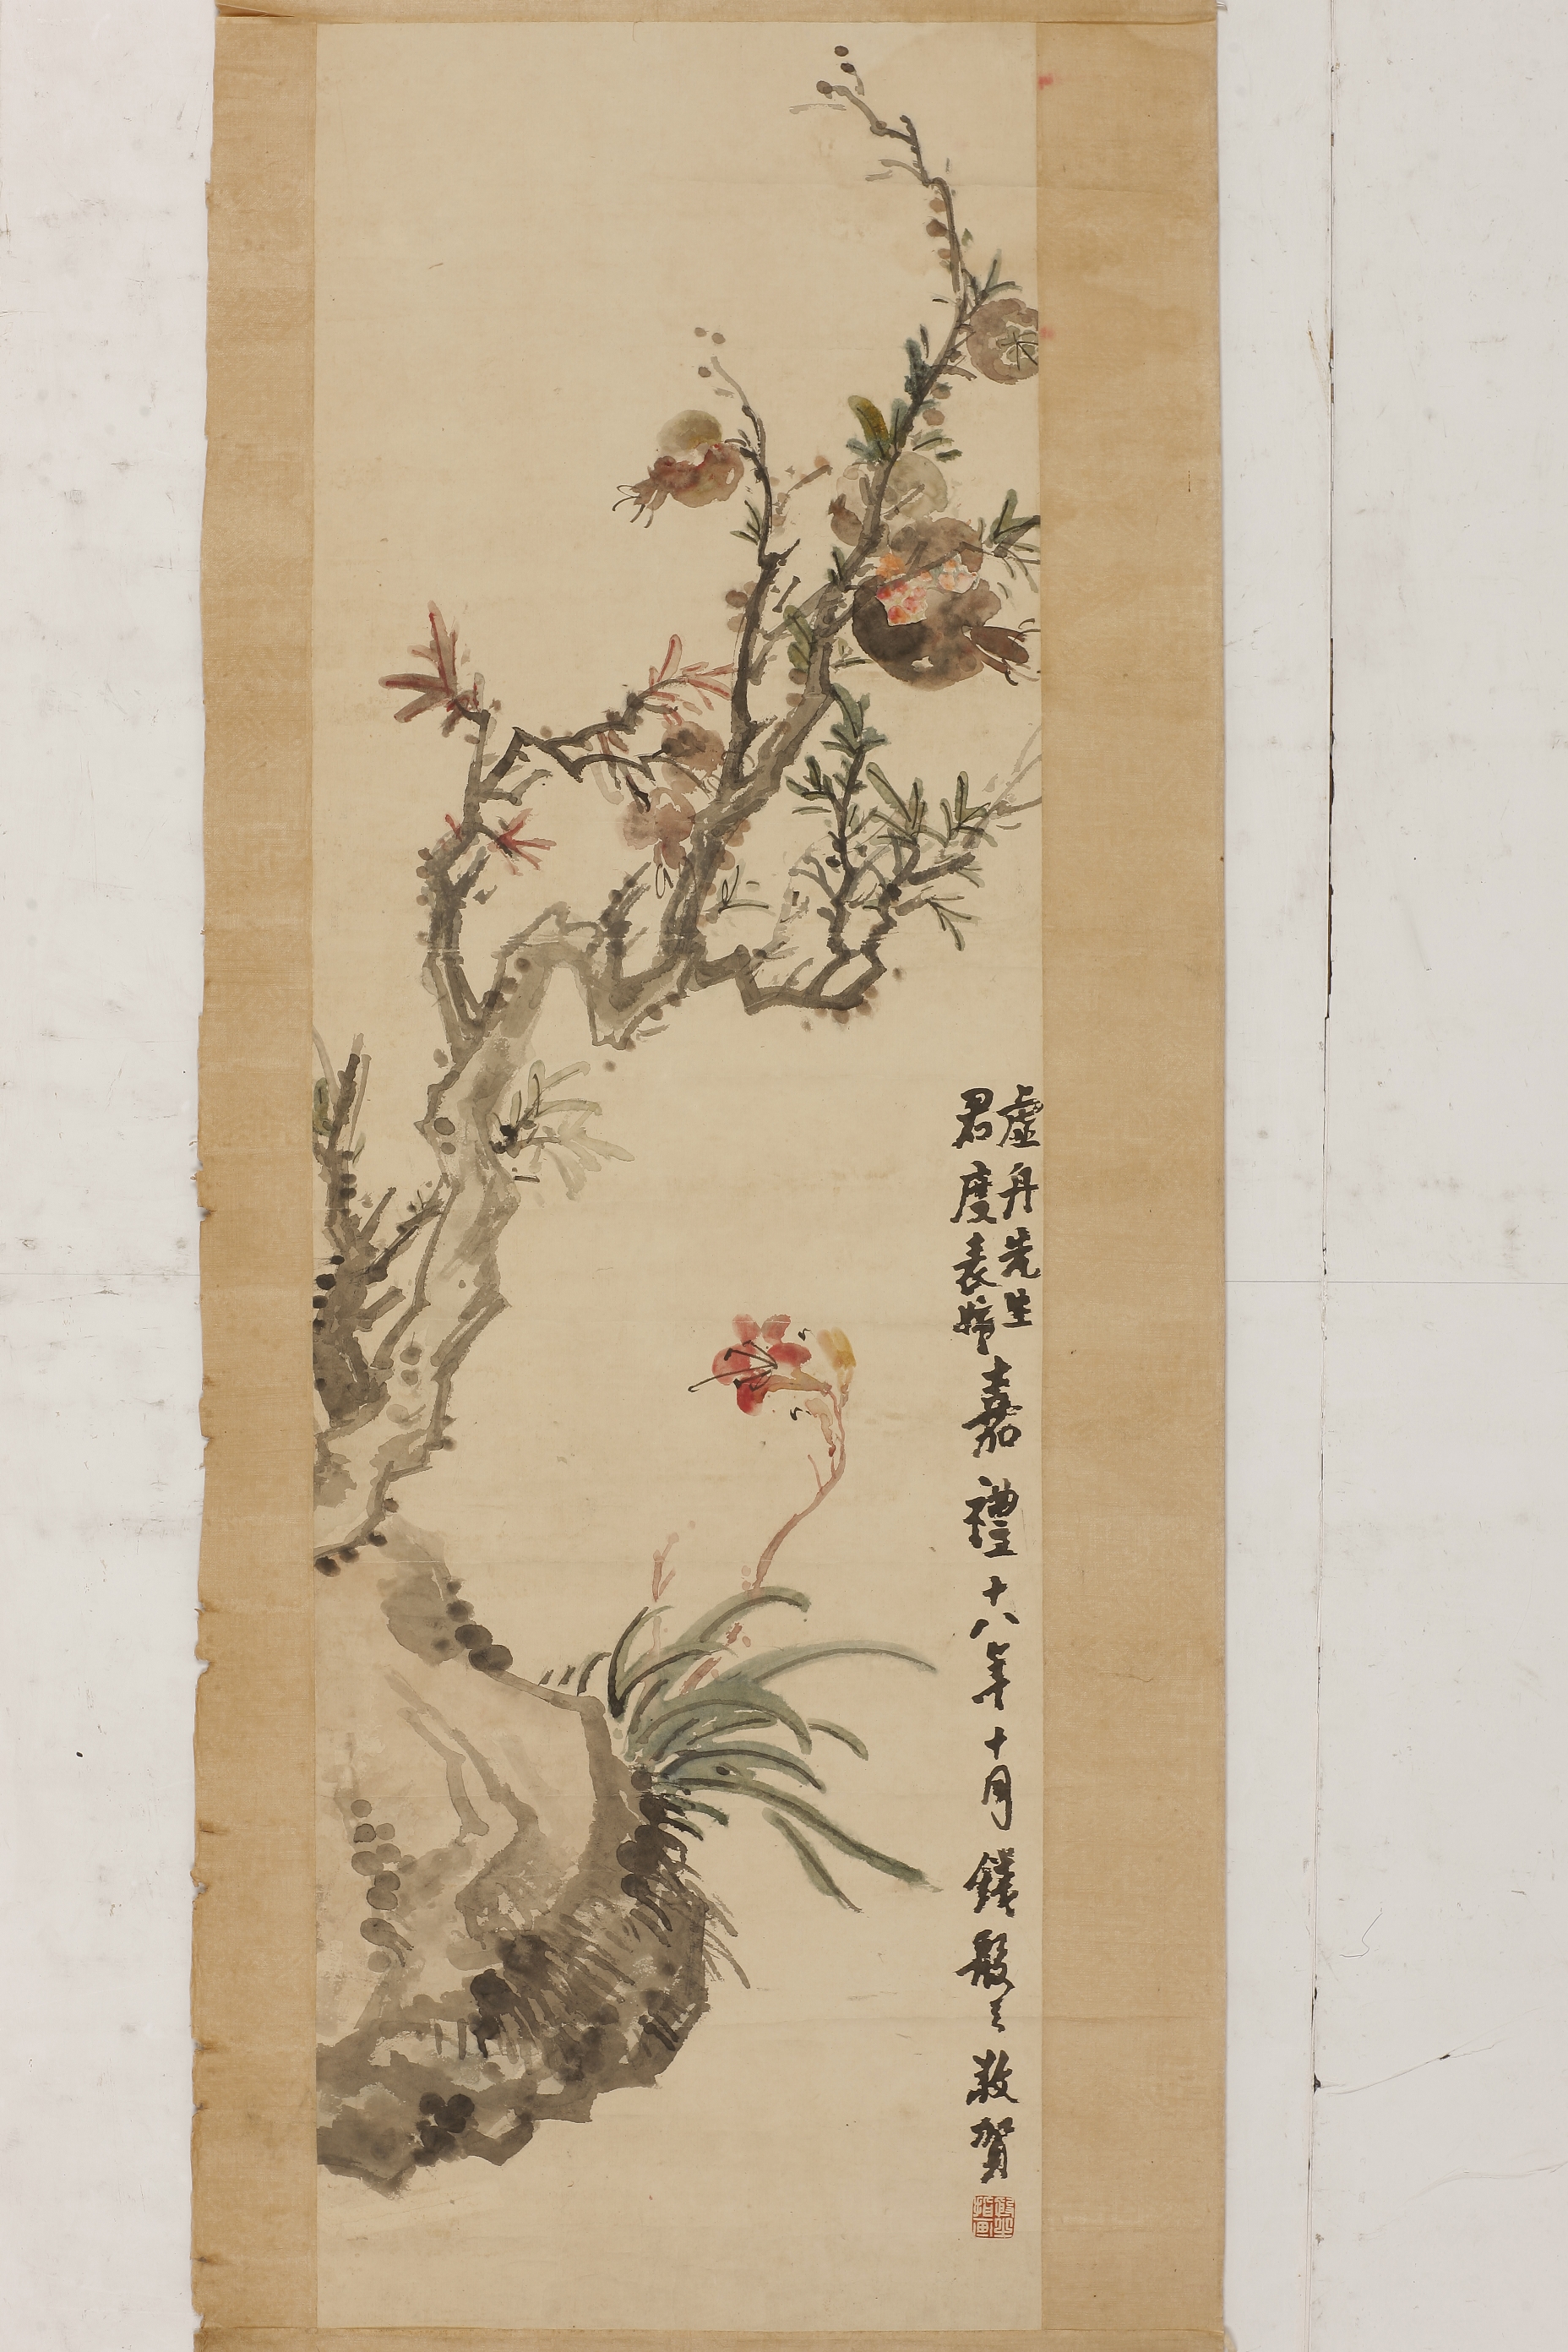 虛舟先生
君度表姊
嘉禮十八年十月錢殷之敬賀
殷之指画